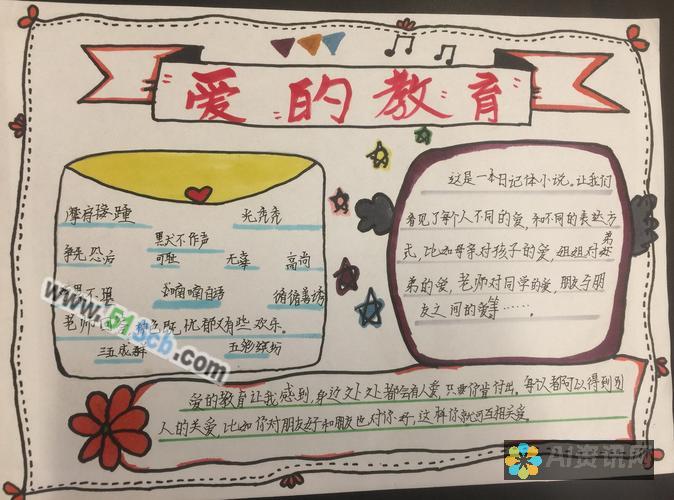 爱的教育
摩肩接踵 光秃秃
默不作声
争先恐后 可耻 无辜 高尚
喃喃自语 循循善诱
老师 色既忧郁又有些欢乐。
三五成群 五彩缤纷
这是一本日记体小说。让我们
看见了每个人不同的爱,和不同的表达方
式,比如母亲对孩子的爱,姐姐对弟
弟的爱,老师对同学的爱,朋友与朋
友之间的爱等……。
爱的教育让我感到,身边处处都会有人爱,只要你肯付出。每次都可以得到别
人的关爱,比如你对朋友好和朋友也对你好,这样你就可互相关爱。
www.51scb.com
AI资讯网